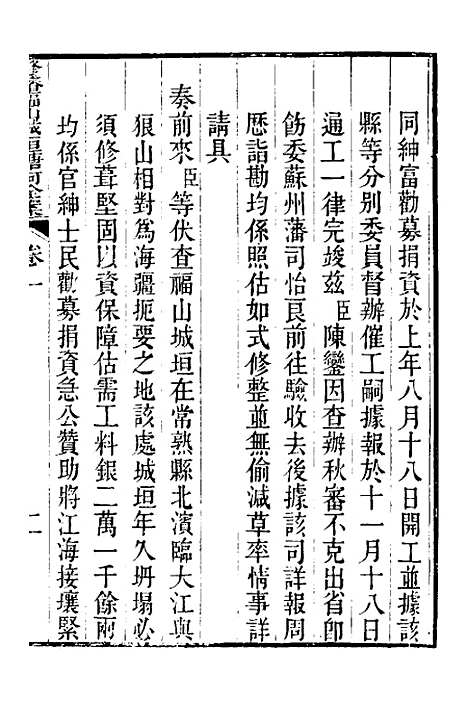 同紳富勸募捐資於上年八月十八日開工並據該
縣等分別委員督辦催工嗣據報於十一月十八日
通工一律完竣兹臣陳鑾因查辦秋審不克出省卽
飭委蘇州藩司怡良前往驗收去後據該司詳報周
歷詣勘均係照估如式修整並無偷減草率情事詳
請具
奏前來臣等伏查福山城垣在常熟縣北濱臨大江與
狼山相對爲海疆扼要之地該處城垣年久坍塌必
須修葺堅固以資保障估需工料銀二萬一千餘兩
均係官紳士民勸募捐資急公贊助將江海接壤緊
卷一
二